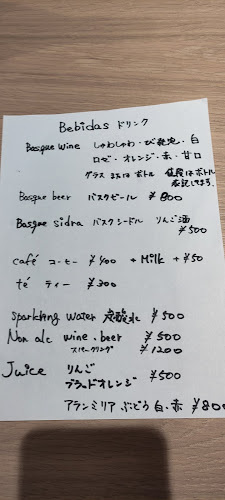 Bebidas ドリンク
Basque wine しゅわしゅわ・び発泡・白
ロゼ・オレンジ・赤・甘口
グラス または ボトル 値段はボトル
表記してます。
Basque beer バスクビール ¥800
Basque sidra バスクシードル りんご酒
¥500
café コーヒー ¥400 + Milk + ¥50
té ティー ¥300
Sparkling water 炭酸水 ¥500
Non alc wine.beer ¥500
スパークリング ¥1200
Juice りんご
ブラッドオレンジ ¥500
アランミリア ぶどう 白・赤 ¥800